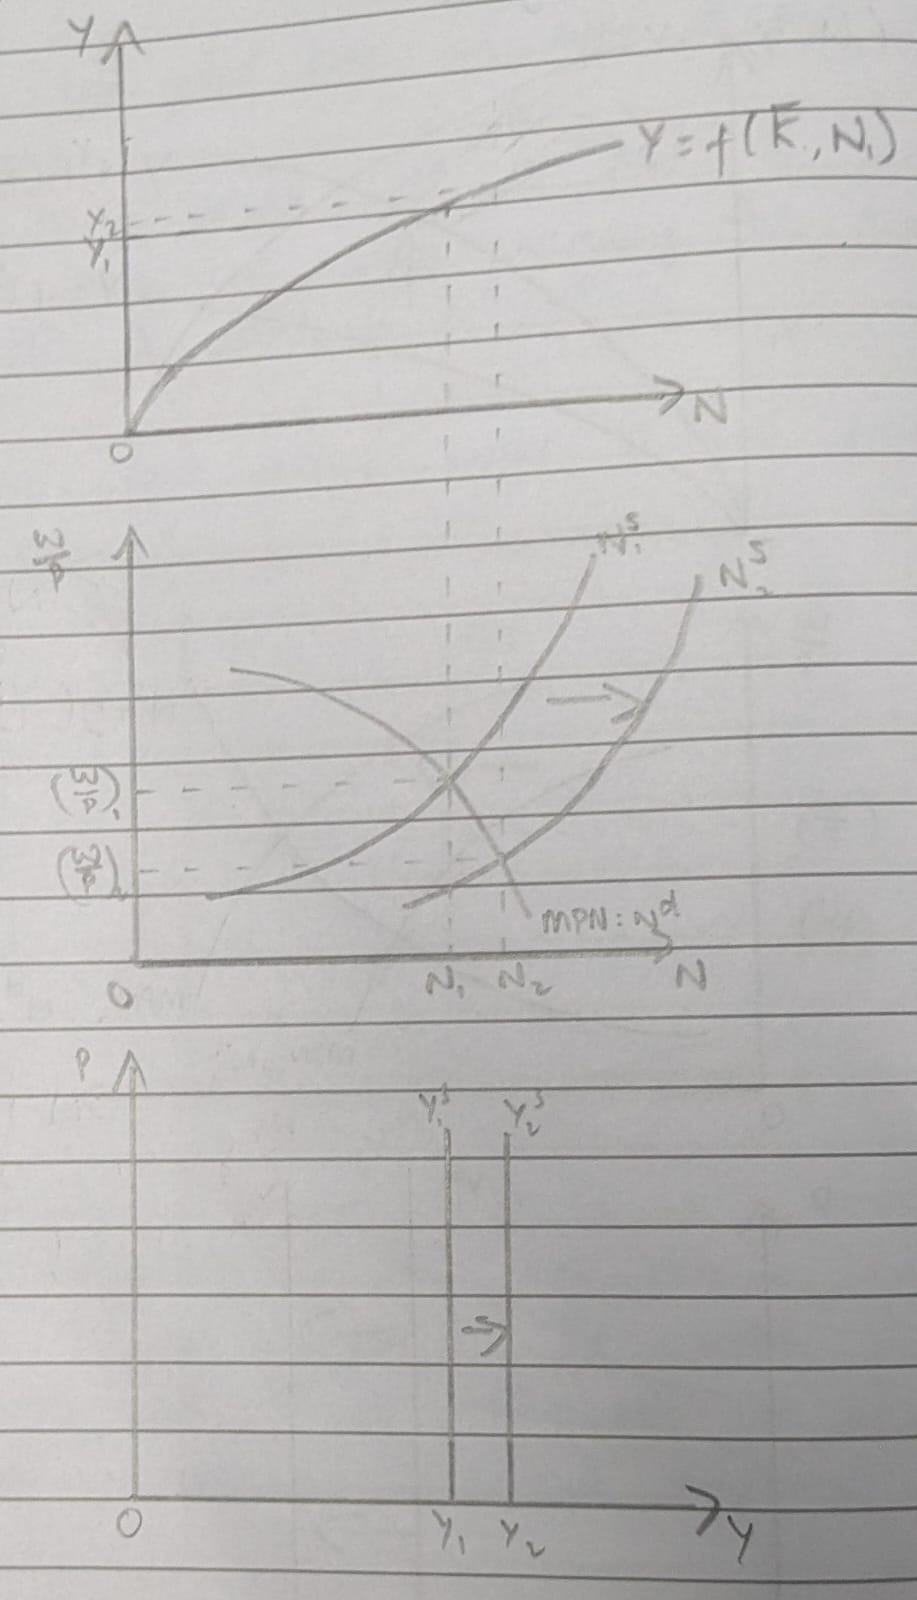 Y
Y = f(K̄, N₁)
Y₂
Y₁
O
N
W/P
N₁ˢ
N₂ˢ
(W/P)₁
(W/P)₂
MPN: Nᵈ
O
N₁
N₂
N
P
Y₁ˢ
Y₂ˢ
O
Y₁
Y₂
Y